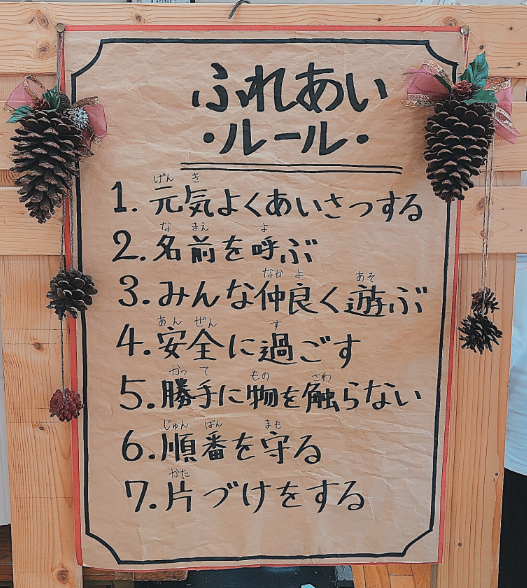 ふれあい
・ルール・
げん き
1. 元気よくあいさつする
な まえ よ
2. 名前を呼ぶ
なか よ あそ
3. みんな仲良く遊ぶ
あん ぜん す
4. 安全に過ごす
かっ て もの さわ
5. 勝手に物を触らない
じゅん ばん まも
6. 順番を守る
かた
7. 片づけをする